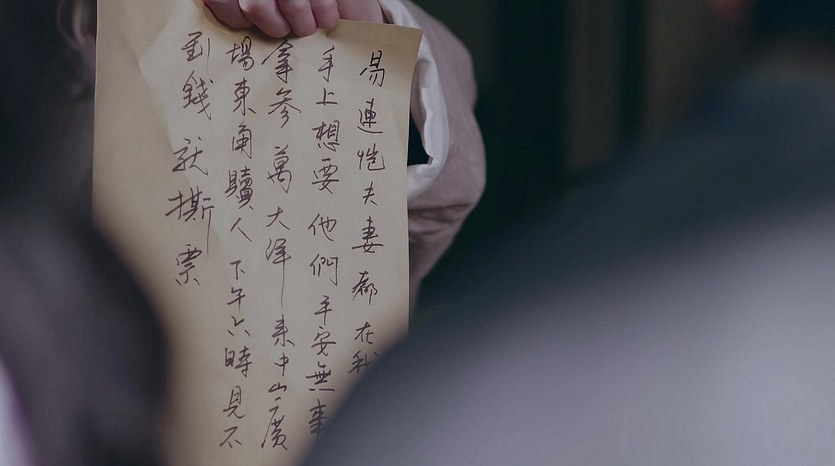 易連愷夫妻都在我
手上想要他們平安無事
拿参萬大洋來中山廣
場東角贖人下午六時見不
到錢就撕票